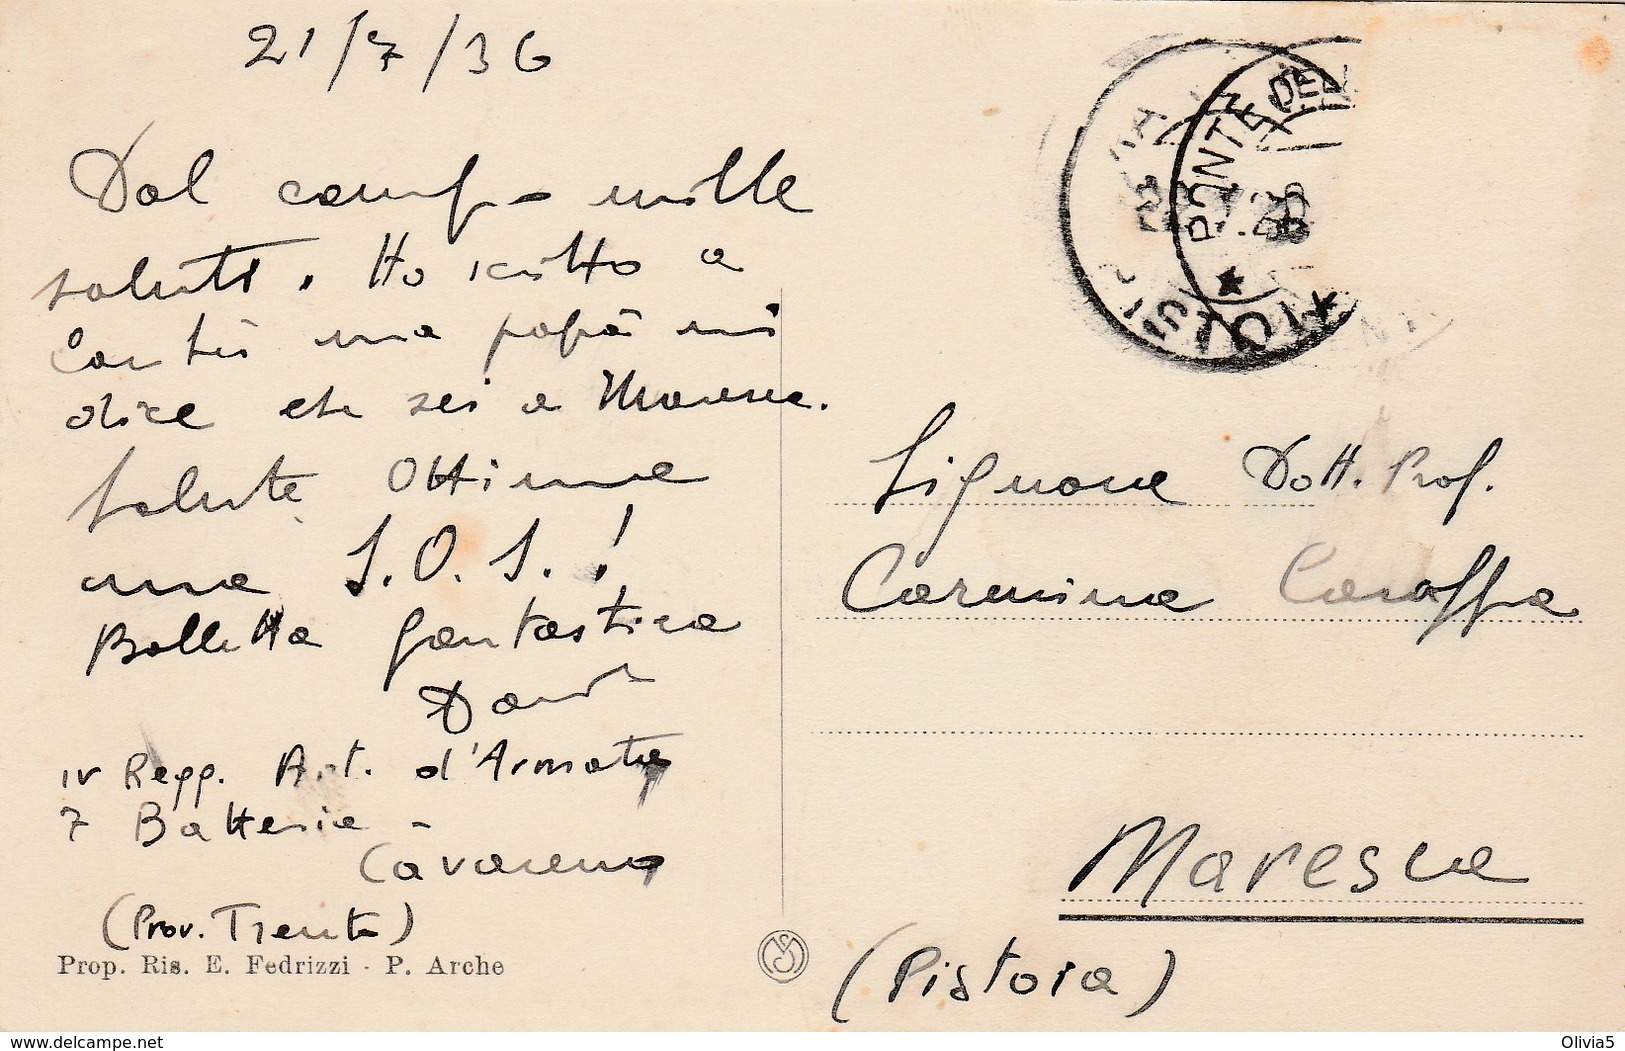 21/7/36
Dal campo mille
saluti. Ho scritto a
ma papà mi
dice che sei a Maresca.
Salute ottima
ma S.O.S.!
Bolletta fantastica
IV Regg. Art. d'Armata
7 Batteria -
Cavareno
(Prov. Trento)
Prop. Ris. E. Fedrizzi - P. Arche
PONTE DEL
Signora Dott. Prof.
Carmina Caraffa
Maresca
(Pistoia)
www.delcampe.net
Olivia5